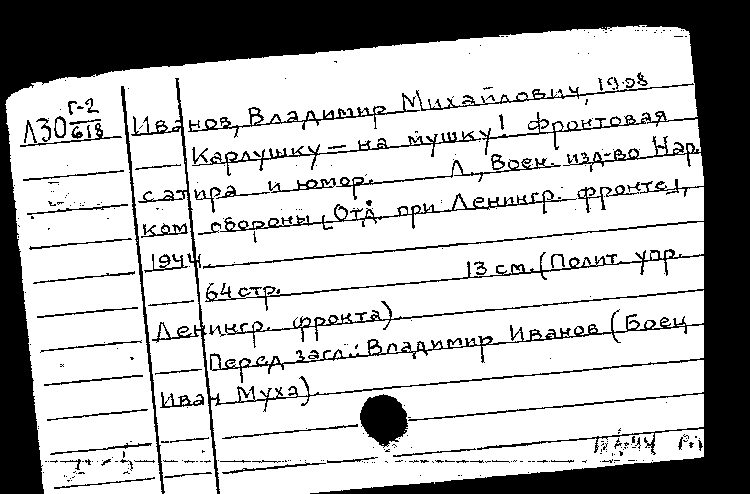 Г-2
Л30 618 Иванов, Владимир Михайлович, 1908
Карлушку — на мушку! Фронтовая
сатира и юмор. Л., Воен. изд-во Нар.
ком. обороны [Отд. при Ленингр. фронте],
1944.
64 стр. 13 см. (Полит. упр.
Ленингр. фронта).
Перед загл.: Владимир Иванов (Боец
Иван Муха).